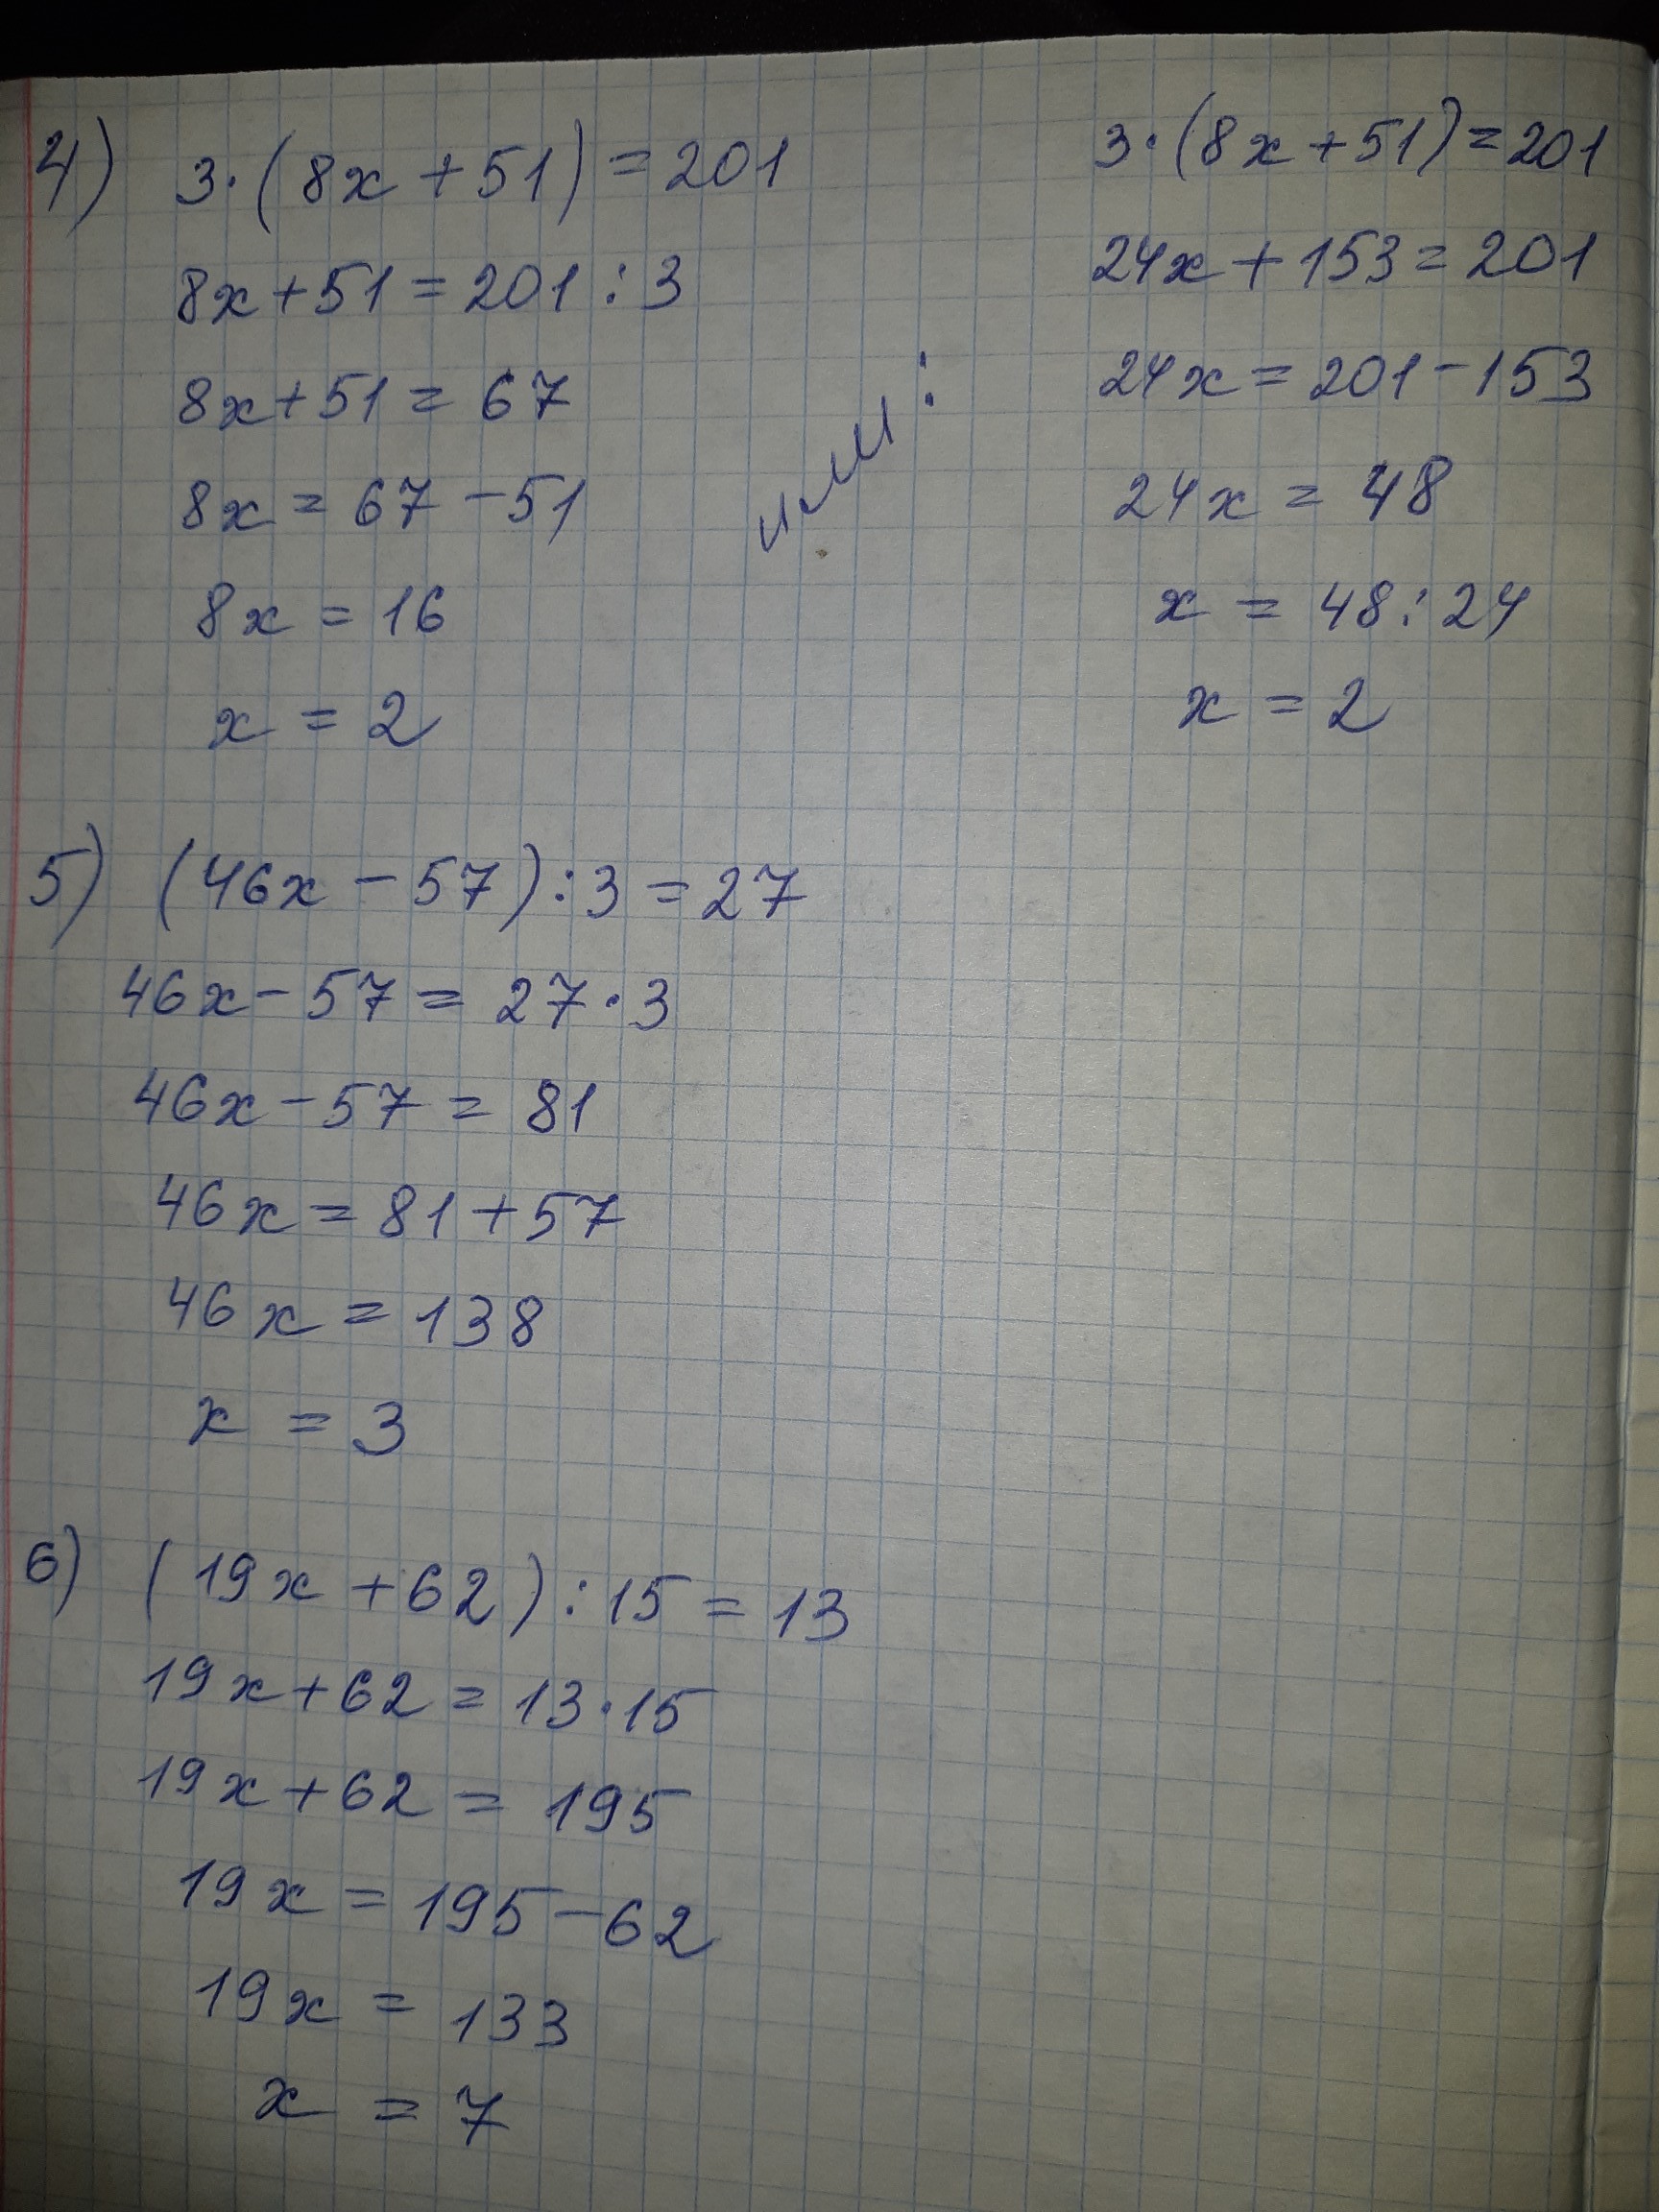 4) 3·(8x+51)=201
8x+51=201:3
8x+51=67
8x=67-51
8x=16
x=2
или:
3·(8x+51)=201
24x+153=201
24x=201-153
24x=48
x=48:24
x=2
5) (46x-57):3=27
46x-57=27·3
46x-57=81
46x=81+57
46x=138
x=3
6) (19x+62):15=13
19x+62=13·15
19x+62=195
19x=195-62
19x=133
x=7